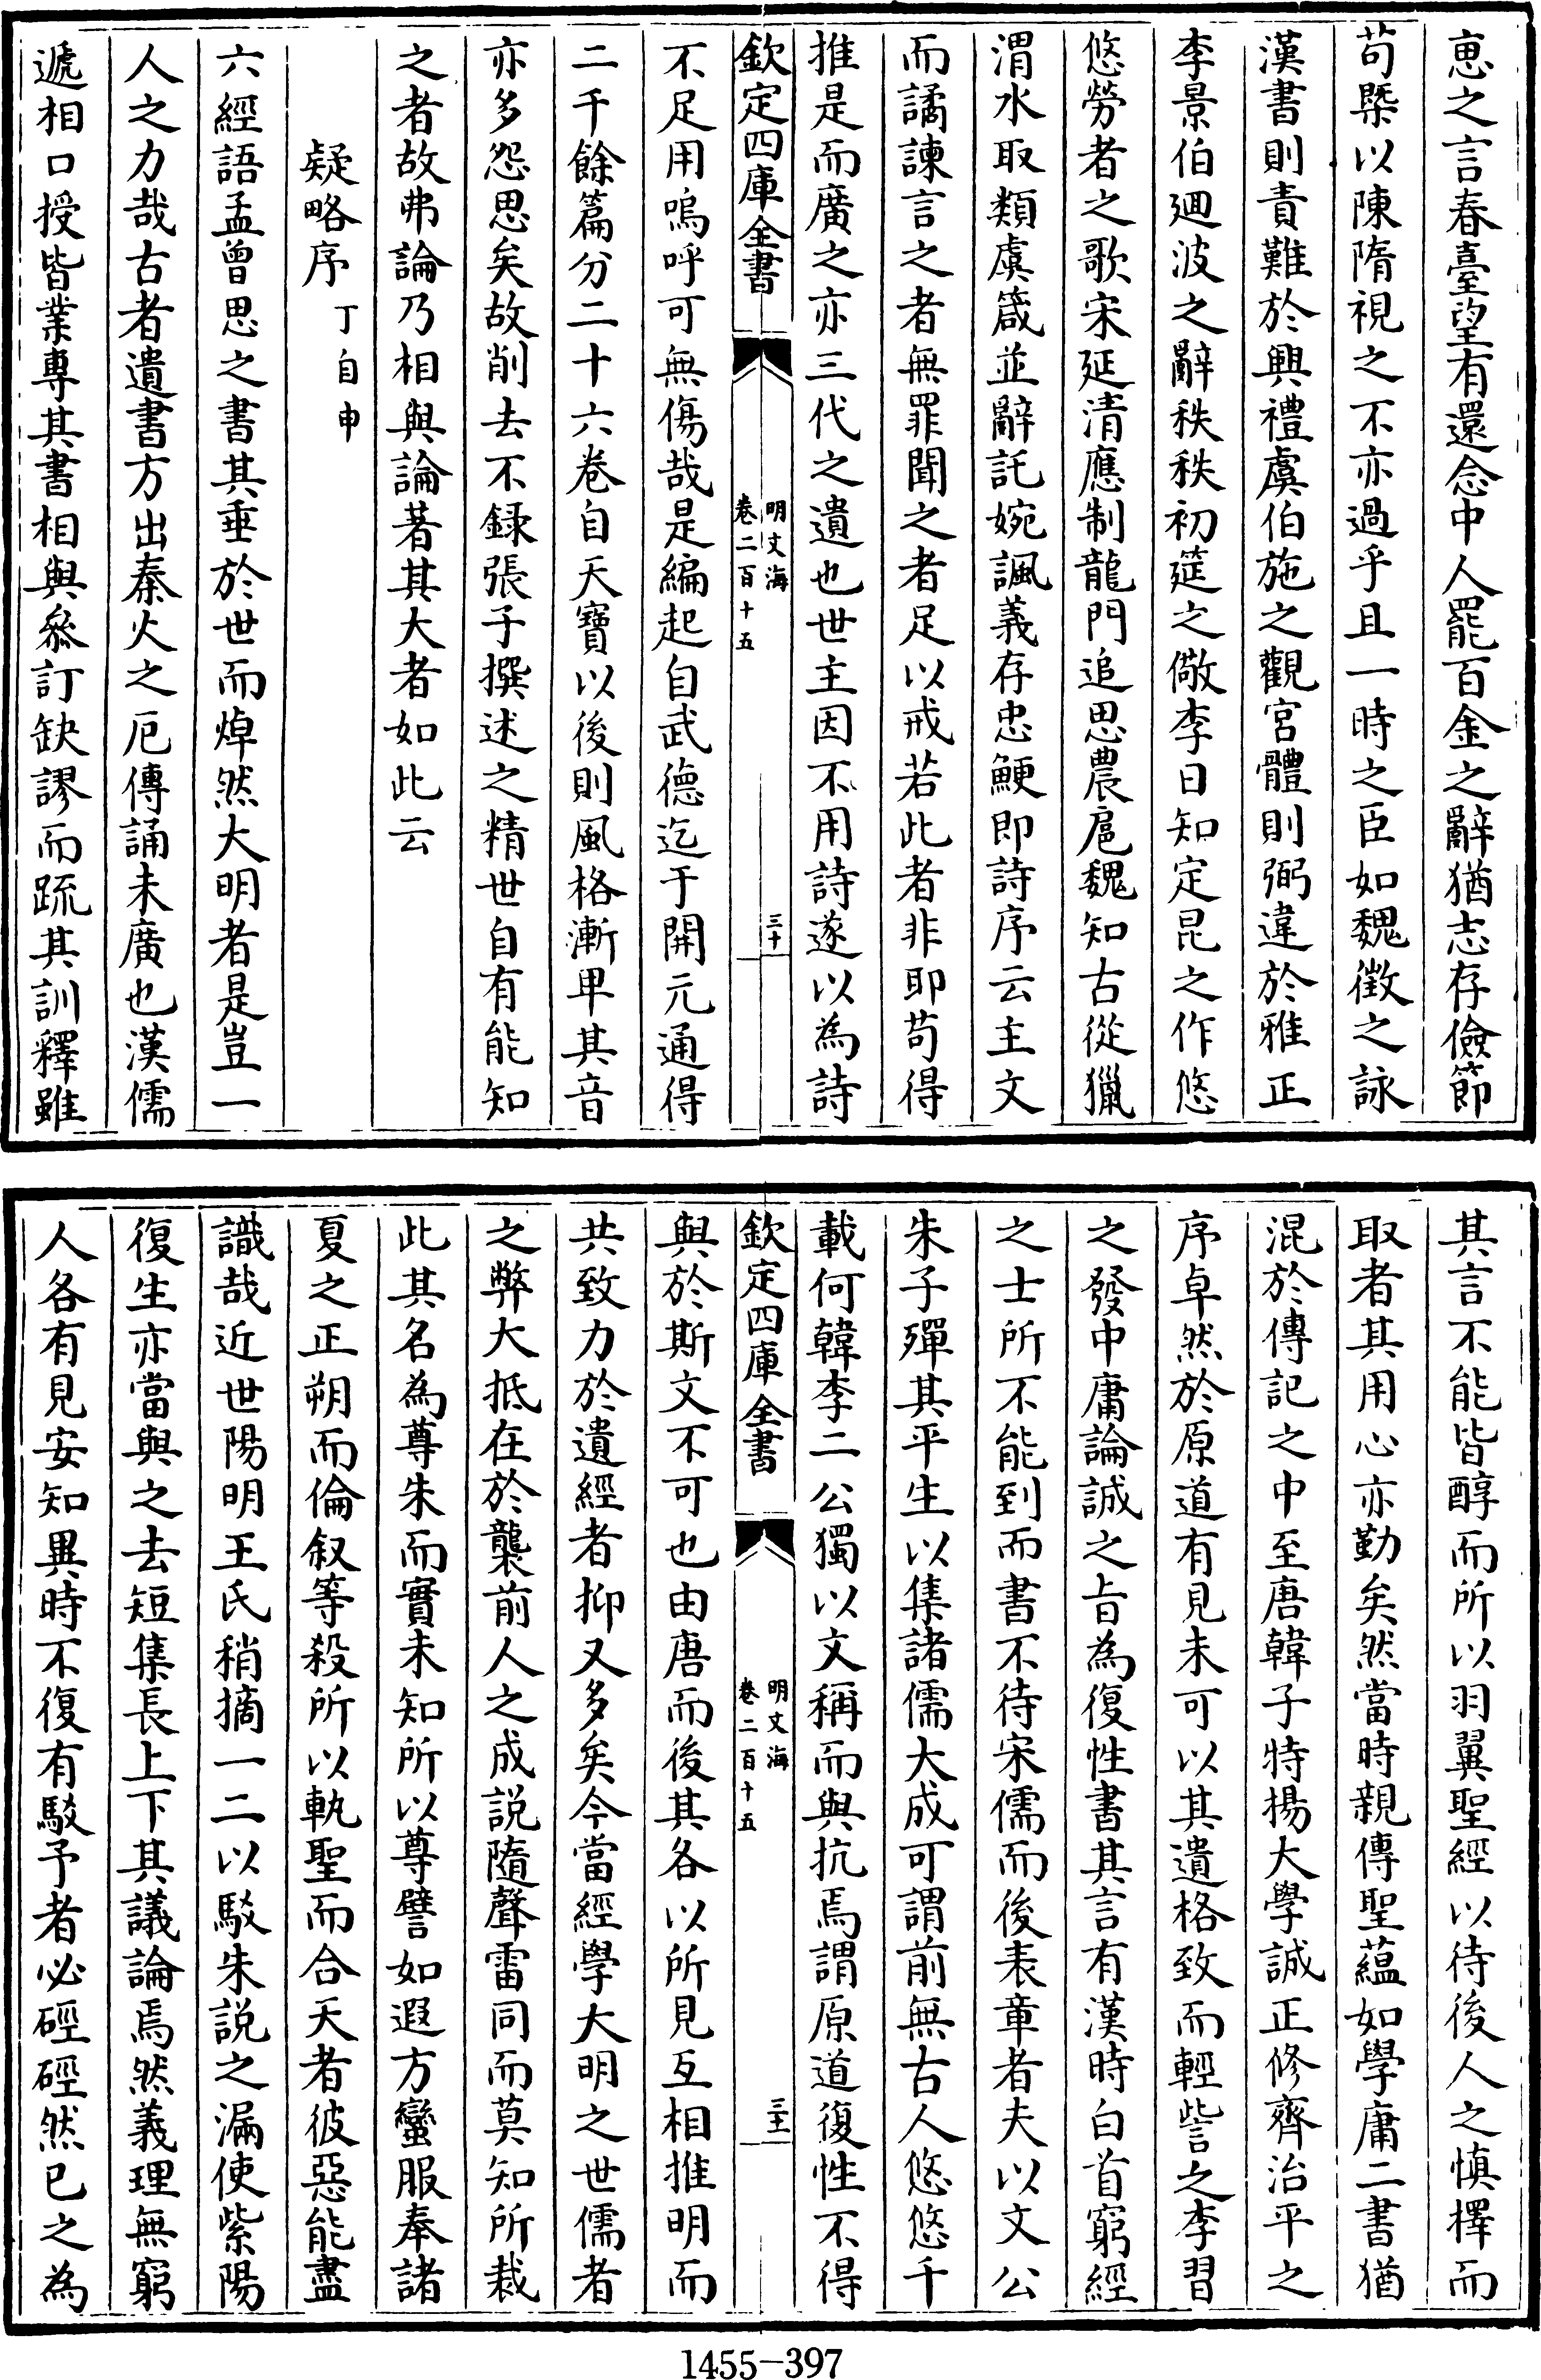 恵之言春臺望有還念中人罷百金之辭猶志存儉節
苟槩以陳隋視之不亦過乎且一時之臣如魏徵之詠
漢書則責難於興禮虞伯施之觀宮體則弼違於雅正
李景伯廻波之辭秩秩初筵之儆李日知定昆之作悠
悠勞者之歌宋延清應制龍門追思農扈魏知古從獵
渭水取類虞箴並辭託婉諷義存忠鯁即詩序云主文
而譎諫言之者無罪聞之者足以戒若此者非耶苟得
推是而廣之亦三代之遺也世主因不用詩遂以為詩
欽定四庫全書
明文海
卷二百十五
三十
不足用嗚呼可無傷哉是編起自武德迄于開元通得
二千餘篇分二十六卷自天寶以後則風格漸卑其音
亦多怨思矣故削去不録張子撰述之精世自有能知
之者故弗論乃相與論著其大者如此云
疑略序 丁自申
六經語孟曾思之書其垂於世而焯然大明者是豈一
人之力哉古者遺書方出秦火之厄傳誦未廣也漢儒
遞相口授皆業專其書相與叅訂缺謬而疏其訓釋雖
其言不能皆醇而所以羽翼聖經以待後人之慎擇而
取者其用心亦勤矣然當時親傳聖蘊如學庸二書猶
混於傳記之中至唐韓子特揚大學誠正修齊治平之
序卓然於原道有見未可以其遺格致而輕訾之李習
之發中庸論誠之旨為復性書其言有漢時白首窮經
之士所不能到而書不待宋儒而後表章者夫以文公
朱子殫其平生以集諸儒大成可謂前無古人悠悠千
載何韓李二公獨以文稱而與抗焉謂原道復性不得
欽定四庫全書
明文海
卷二百十五
三十一
與於斯文不可也由唐而後其各以所見互相推明而
共致力於遺經者抑又多矣今當經學大明之世儒者
之弊大抵在於襲前人之成説隨聲雷同而莫知所裁
此其名為尊朱而實未知所以尊譬如遐方蠻服奉諸
夏之正朔而倫叙等殺所以軌聖而合天者彼惡能盡
識哉近世陽明王氏稍摘一二以駁朱説之漏使紫陽
復生亦當與之去短集長上下其議論焉然義理無窮
人各有見安知異時不復有駁予者必硜硜然已之為
1455-397